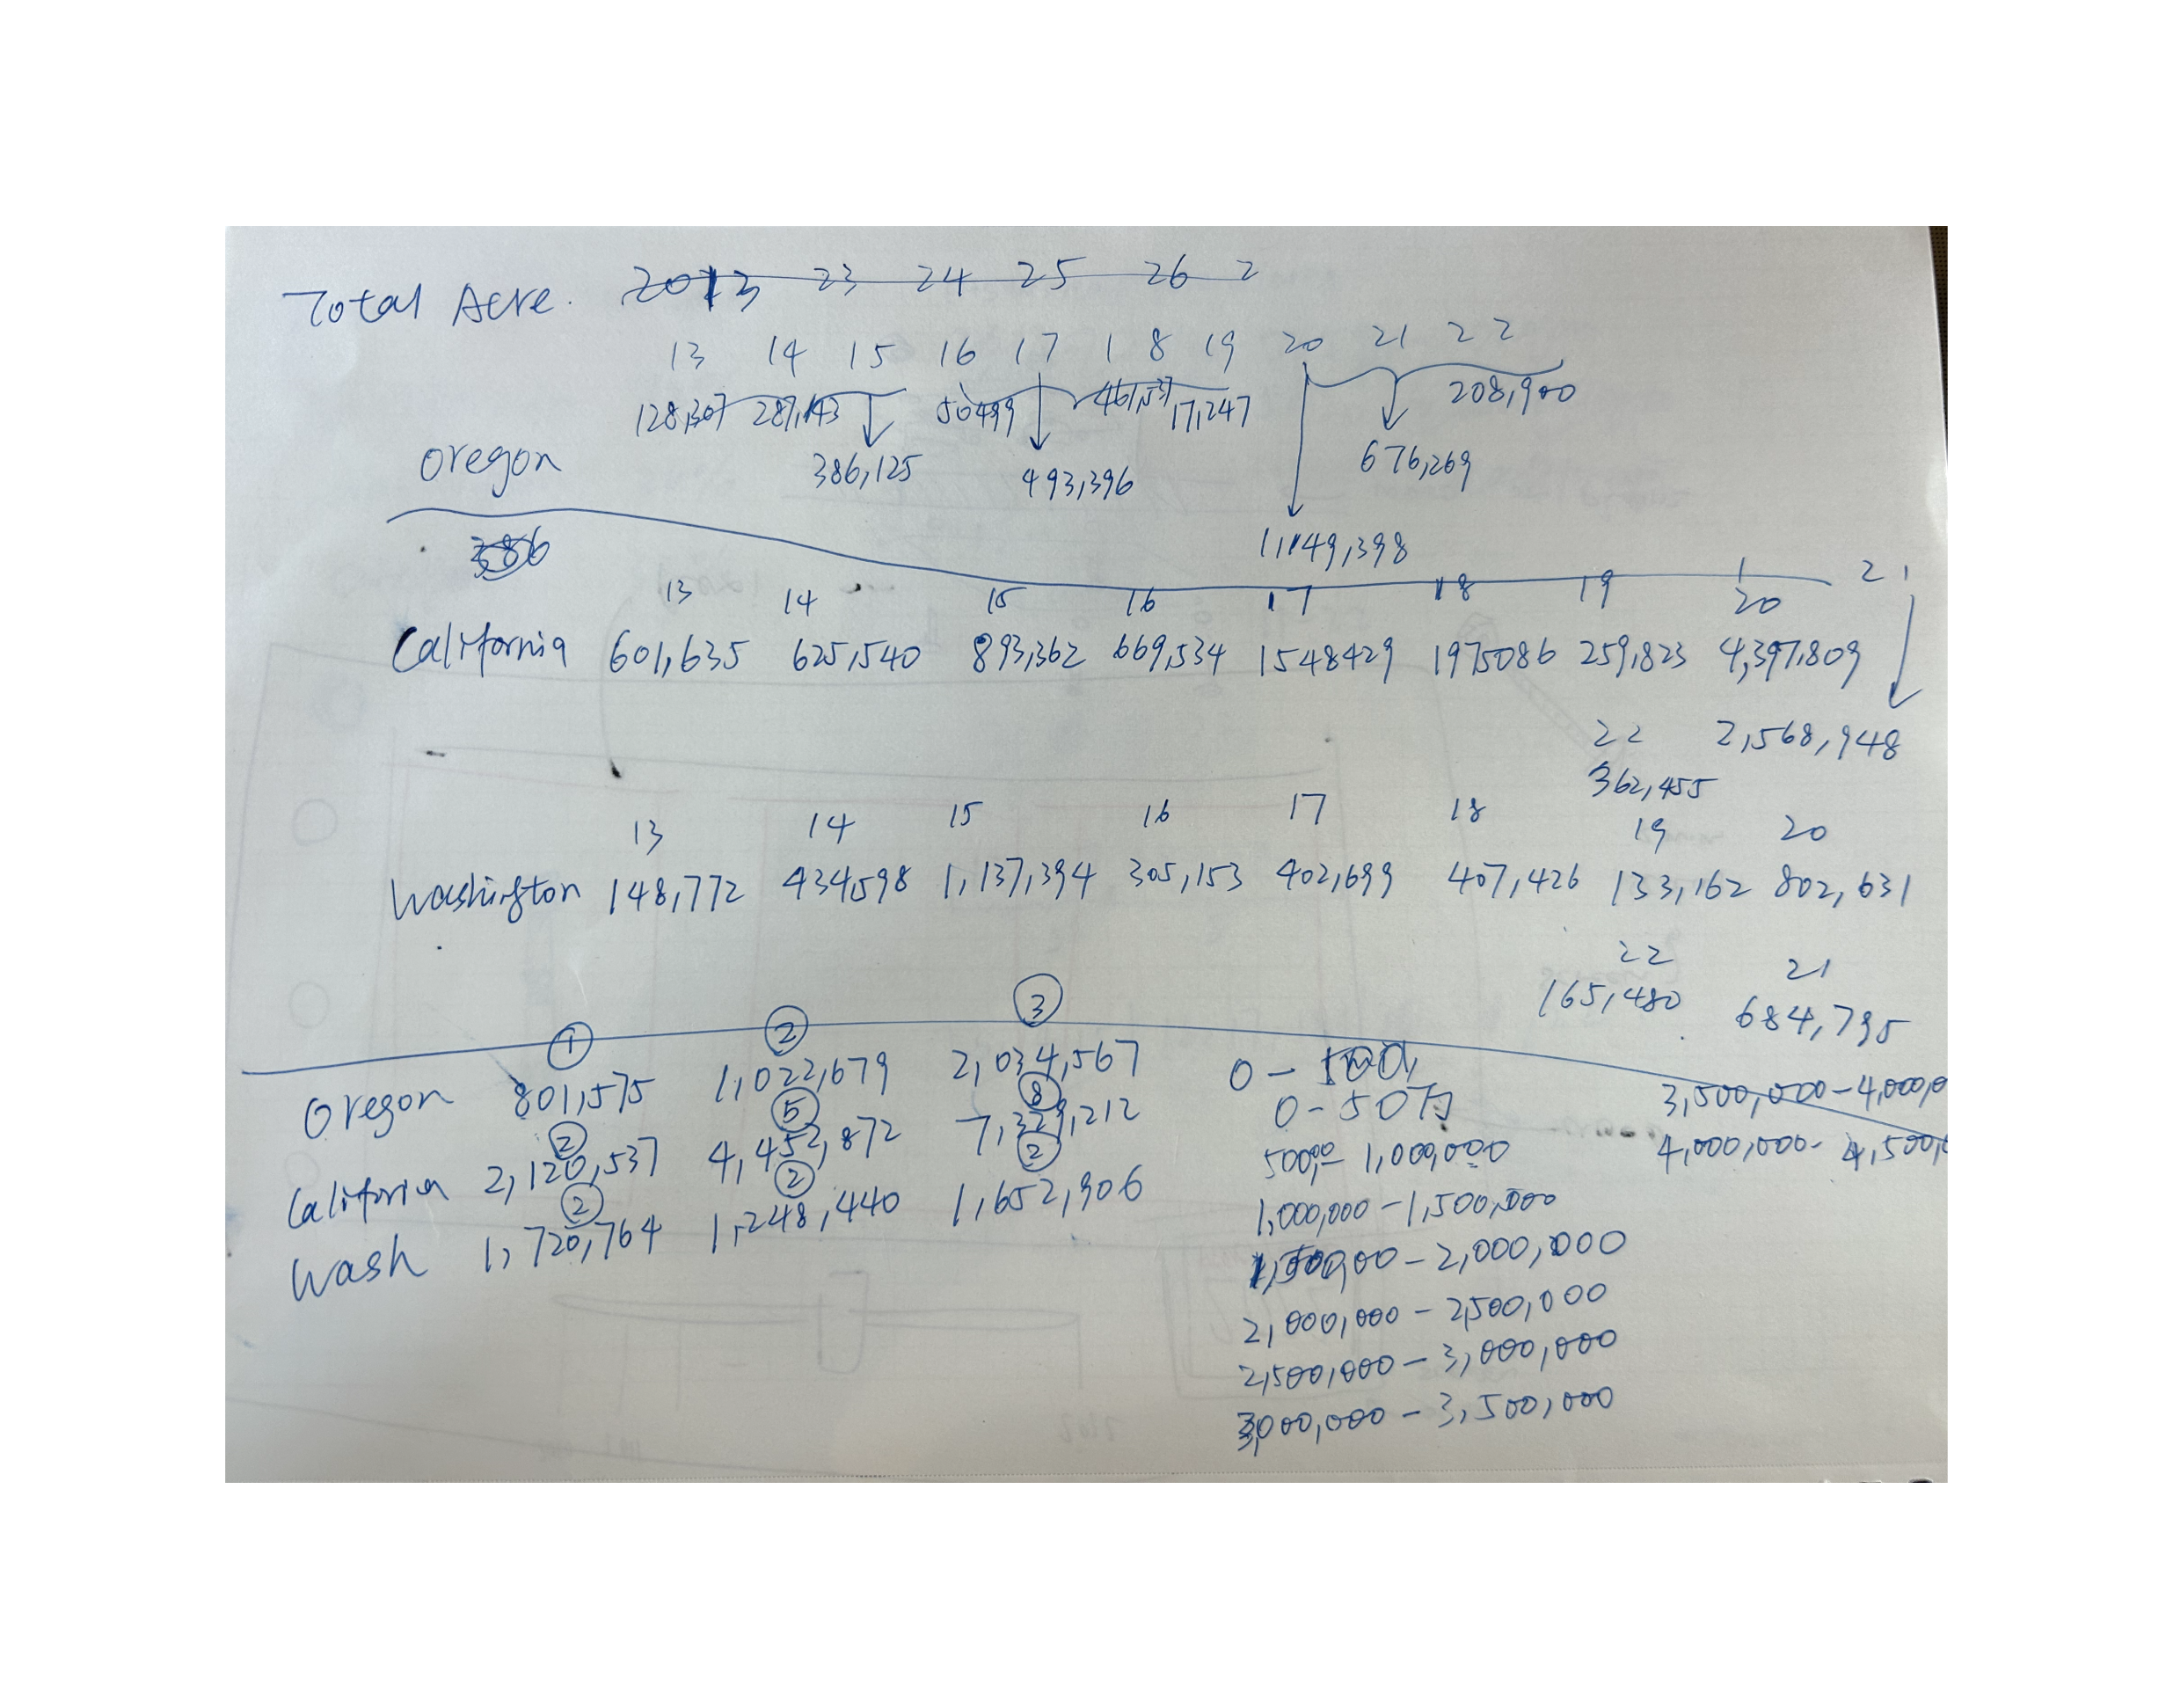 Total Acre. 2013 23 24 25 26 2
13 14 15 16 17 18 19 20 21 22
128,307 287,143 50499 461,537 17,247 208,900
Oregon 386,125 493,396 676,269
1,149,398
386
13 14 15 16 17 18 19 20 21
California 601,635 625,540 893,362 669,534 1548429 1975086 259,823 4,397,809
22 2,568,948
362,455
13 14 15 16 17 18 19 20
Washington 148,772 434,598 1,137,394 305,153 402,699 407,426 133,162 802,631
22 21
165,480 684,795
① ② ③
Oregon 801,575 1,022,679 2,034,567
② ⑤ ⑧
California 2,120,537 4,452,872 7,329,212
② ② ②
Wash 1,720,764 1,248,440 1,652,906
0-50万
500,00- 1,000,000
1,000,000-1,500,000
1,500,00-2,000,000
2,000,000-2,500,000
2,500,000-3,000,000
3,000,000-3,500,000
3,500,000-4,000,0
4,000,000- 4,500,0